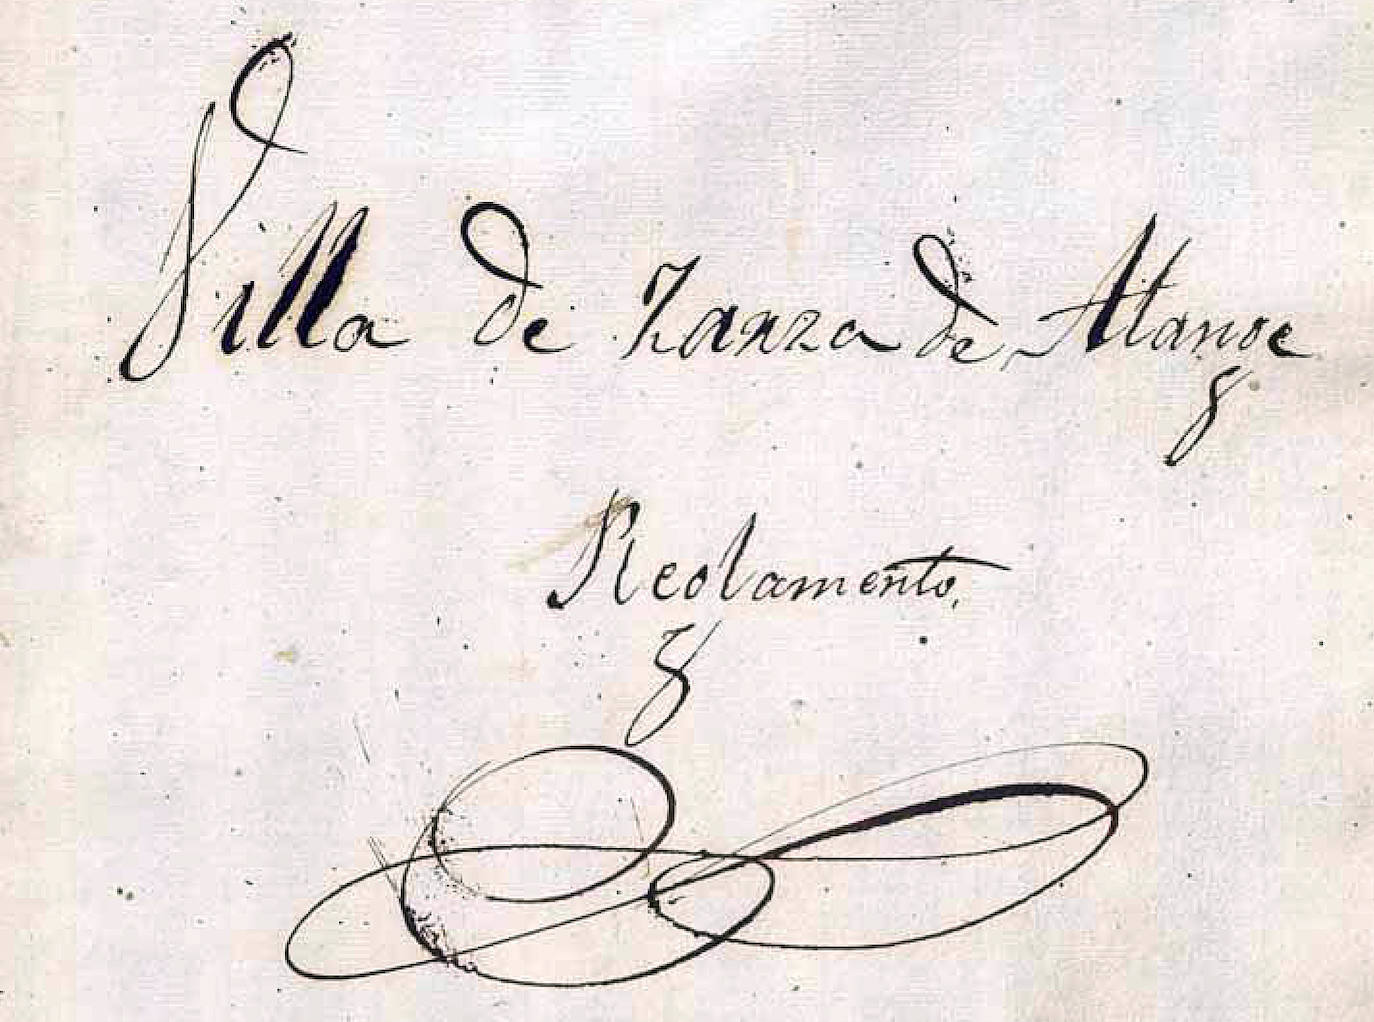 Villa de Zarza de Alange
Reglamento.